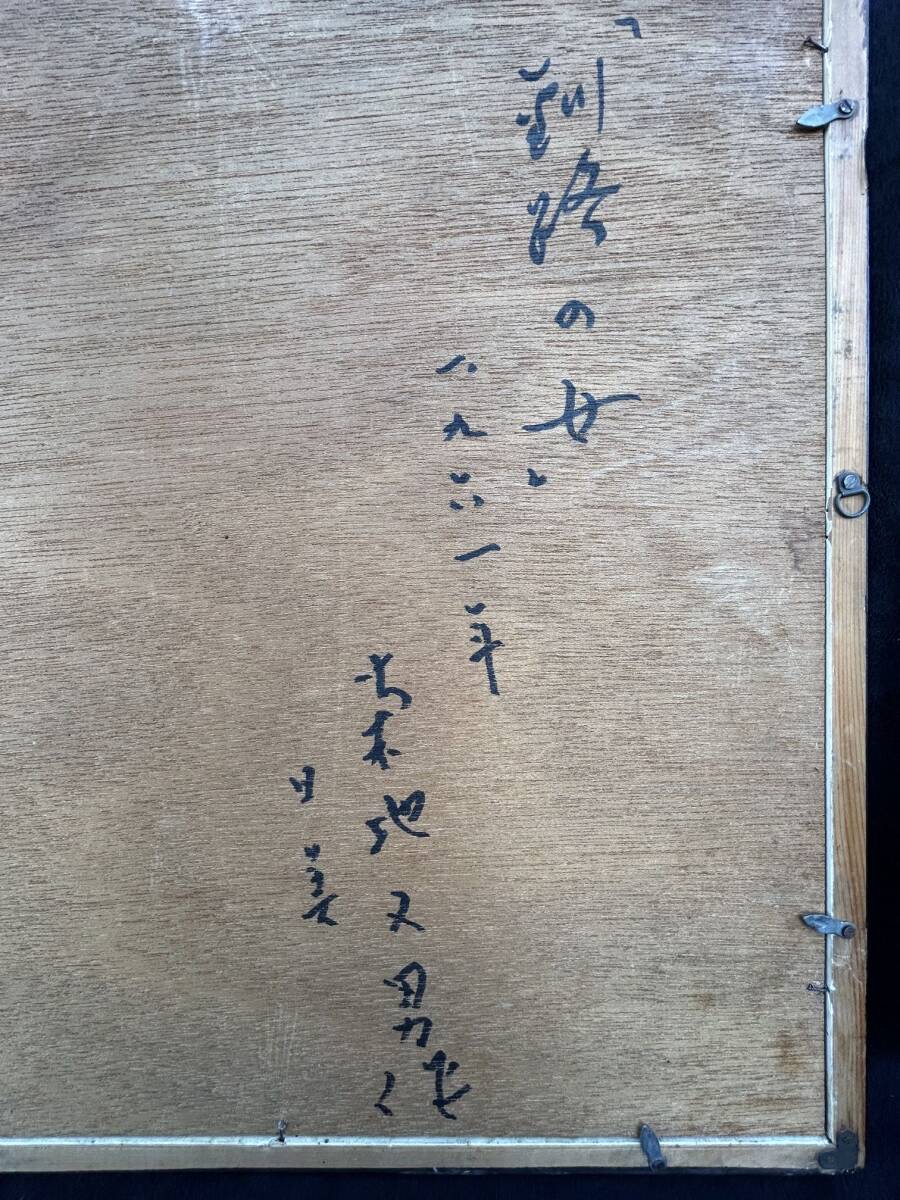 「釧路の女」
一九六一年
菊地又男作
日美